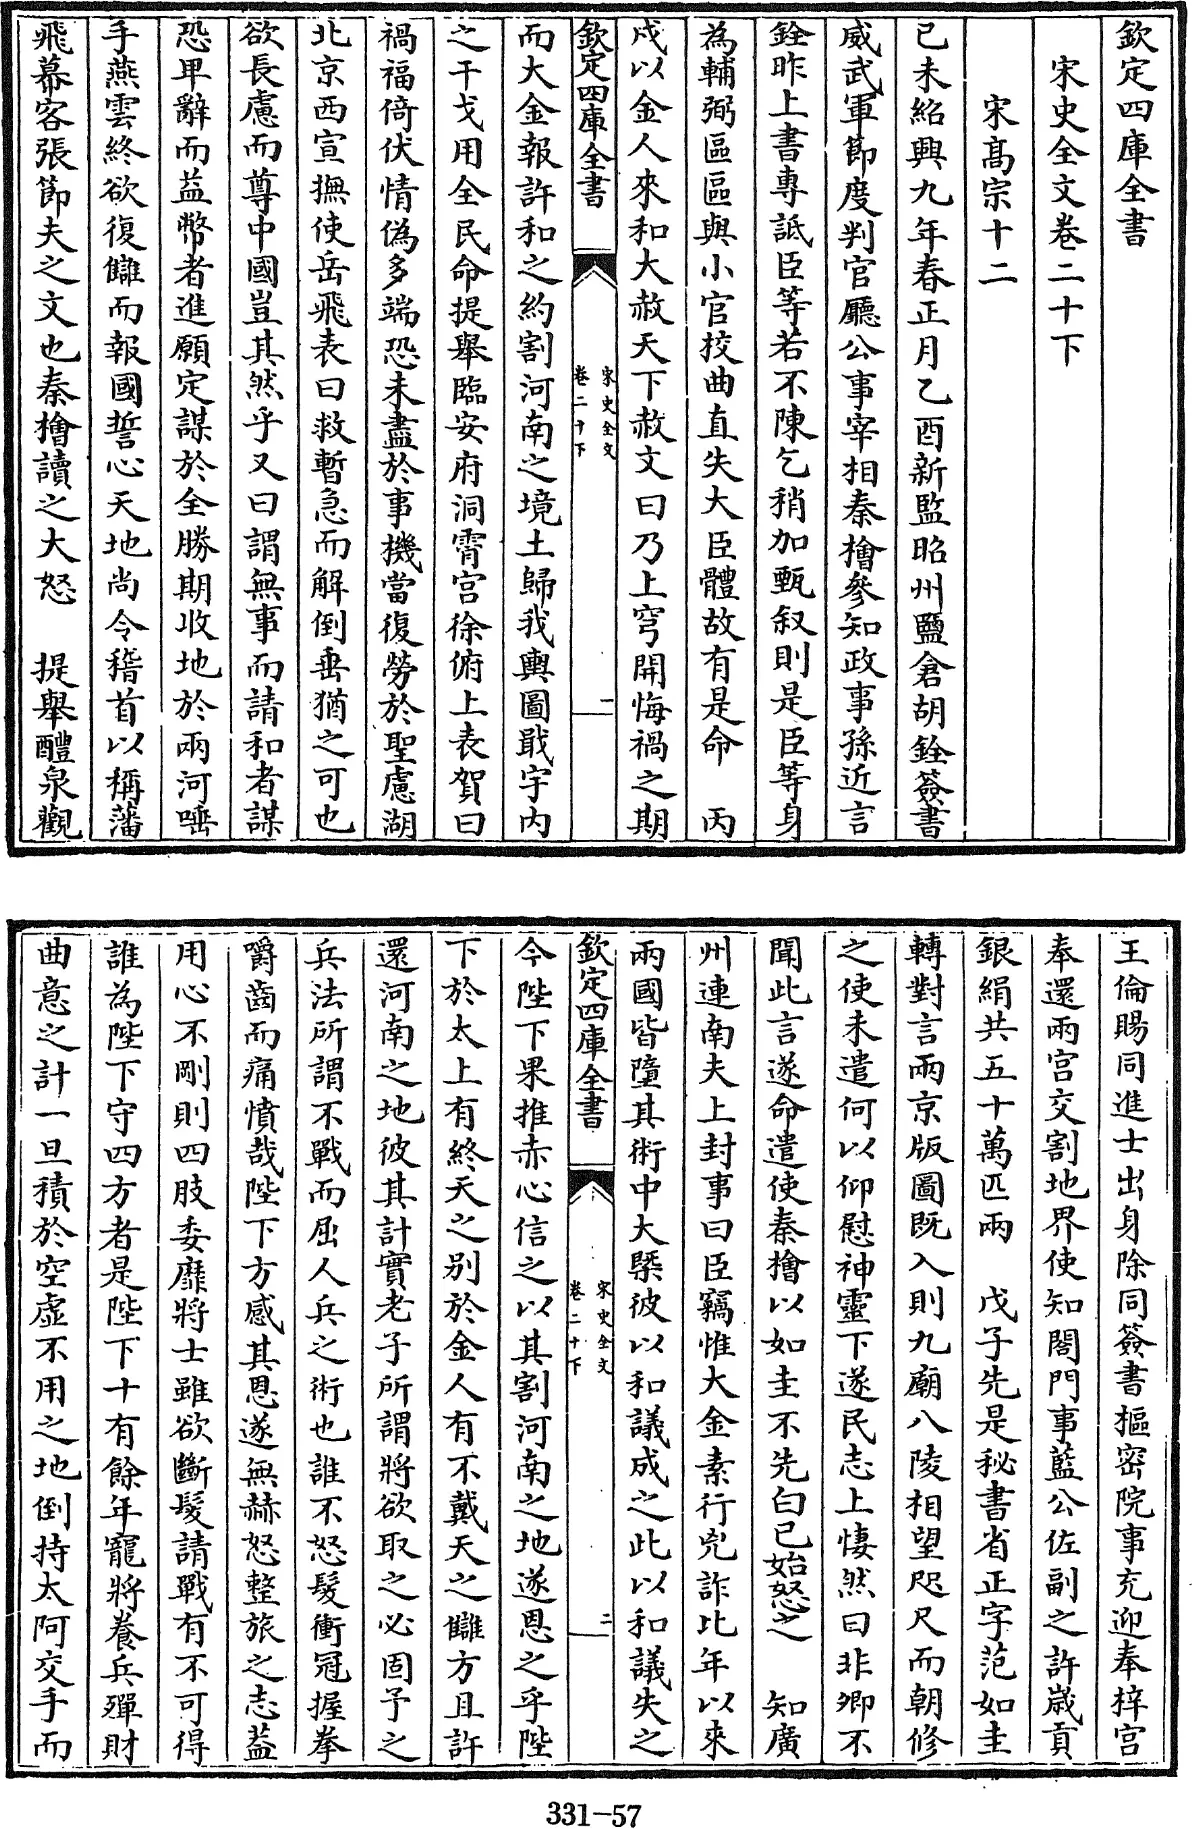 欽定四庫全書
宋史全文卷二十下
宋髙宗十二
己未紹興九年春正月乙酉新監昭州鹽倉胡銓簽書
威武軍節度判官廳公事宰相秦檜參知政事孫近言
銓昨上書專詆臣等若不陳乞稍加甄叙則是臣等身
為輔弼區區與小官校曲直失大臣體故有是命　丙
戌以金人來和大赦天下赦文曰乃上穹開悔禍之期
欽定四庫全書
宋史全文
卷二十下
一
而大金報許和之約割河南之境土歸我輿圖戢宇内
之干戈用全民命提舉臨安府洞霄宫徐俯上表賀曰
禍福倚伏情偽多端恐未盡於事機當復勞於聖慮湖
北京西宣撫使岳飛表曰救暫急而解倒垂猶之可也
欲長慮而尊中國豈其然乎又曰謂無事而請和者謀
恐卑辭而益幣者進願定謀於全勝期收地於兩河唾
手燕雲終欲復讎而報國誓心天地尚令稽首以稱藩
飛幕客張節夫之文也秦檜讀之大怒　提舉醴泉觀
王倫賜同進士出身除同簽書樞密院事充迎奉梓宫
奉還兩宫交割地界使知閤門事藍公佐副之許歲貢
銀絹共五十萬匹兩　戊子先是秘書省正字范如圭
轉對言兩京版圖既入則九廟八陵相望咫尺而朝修
之使未遣何以仰慰神靈下遂民志上悽然曰非卿不
聞此言遂命遣使秦檜以如圭不先白己始怒之　知廣
州連南夫上封事曰臣竊惟大金素行兇詐比年以來
兩國皆墮其術中大槩彼以和議成之此以和議失之
欽定四庫全書
宋史全文
卷二十下
二
今陛下果推赤心信之以其割河南之地遂恩之乎陛
下於太上有終天之别於金人有不戴天之讎方且許
還河南之地彼其計實老子所謂將欲取之必固予之
兵法所謂不戰而屈人兵之術也誰不怒髮衝冠握拳
嚼齒而痛憤哉陛下方感其恩遂無赫怒整旅之志葢
用心不剛則四肢委靡將士雖欲斷髮請戰有不可得
誰為陛下守四方者是陛下十有餘年寵將養兵殫財
曲意之計一旦積於空虛不用之地倒持太阿交手而
331-57